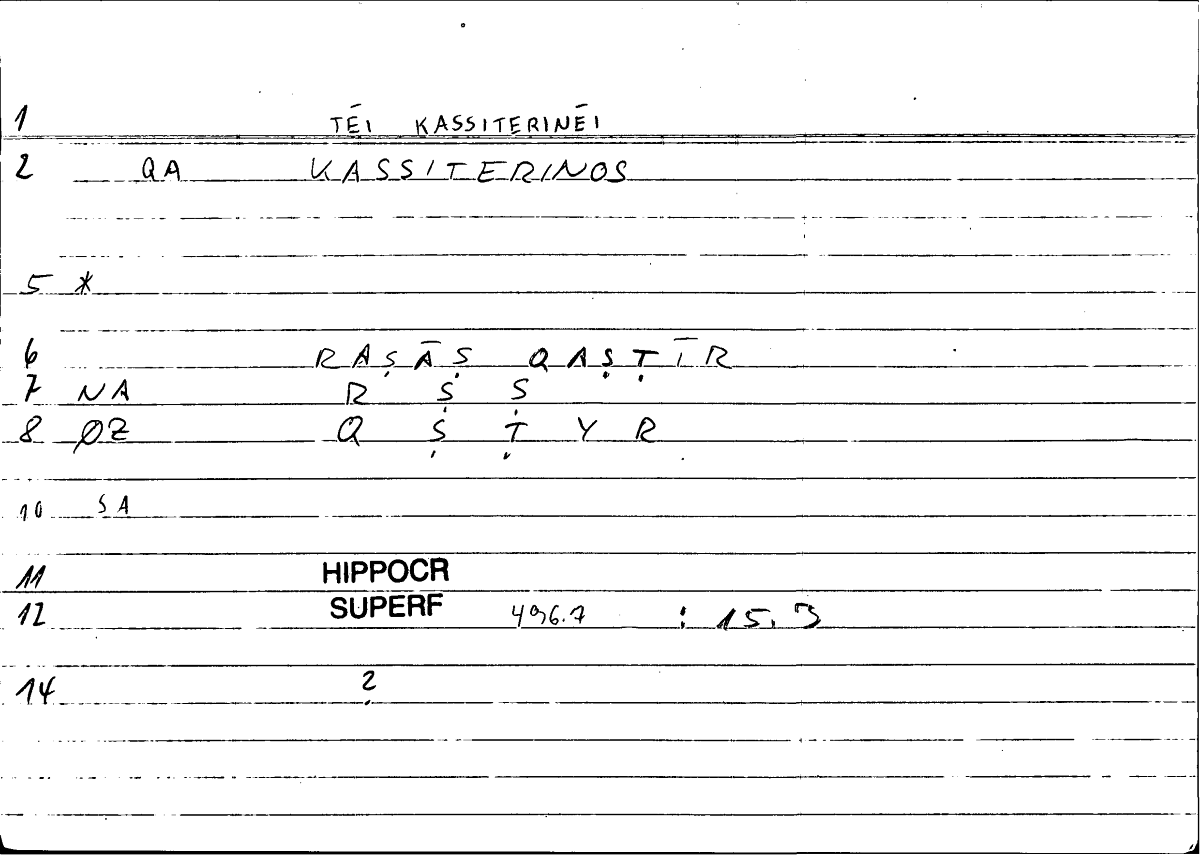 1 TĒI KASSITERINĒI
2 QA KASSITERINOS
5 *
6 RAṢĀṢ QAṢṬĪR
7 NA R Ṣ Ṣ
8 ØZ Q Ṣ Ṭ Y R
10 SA
11 HIPPOCR
12 SUPERF 496.7 : 15.3
14